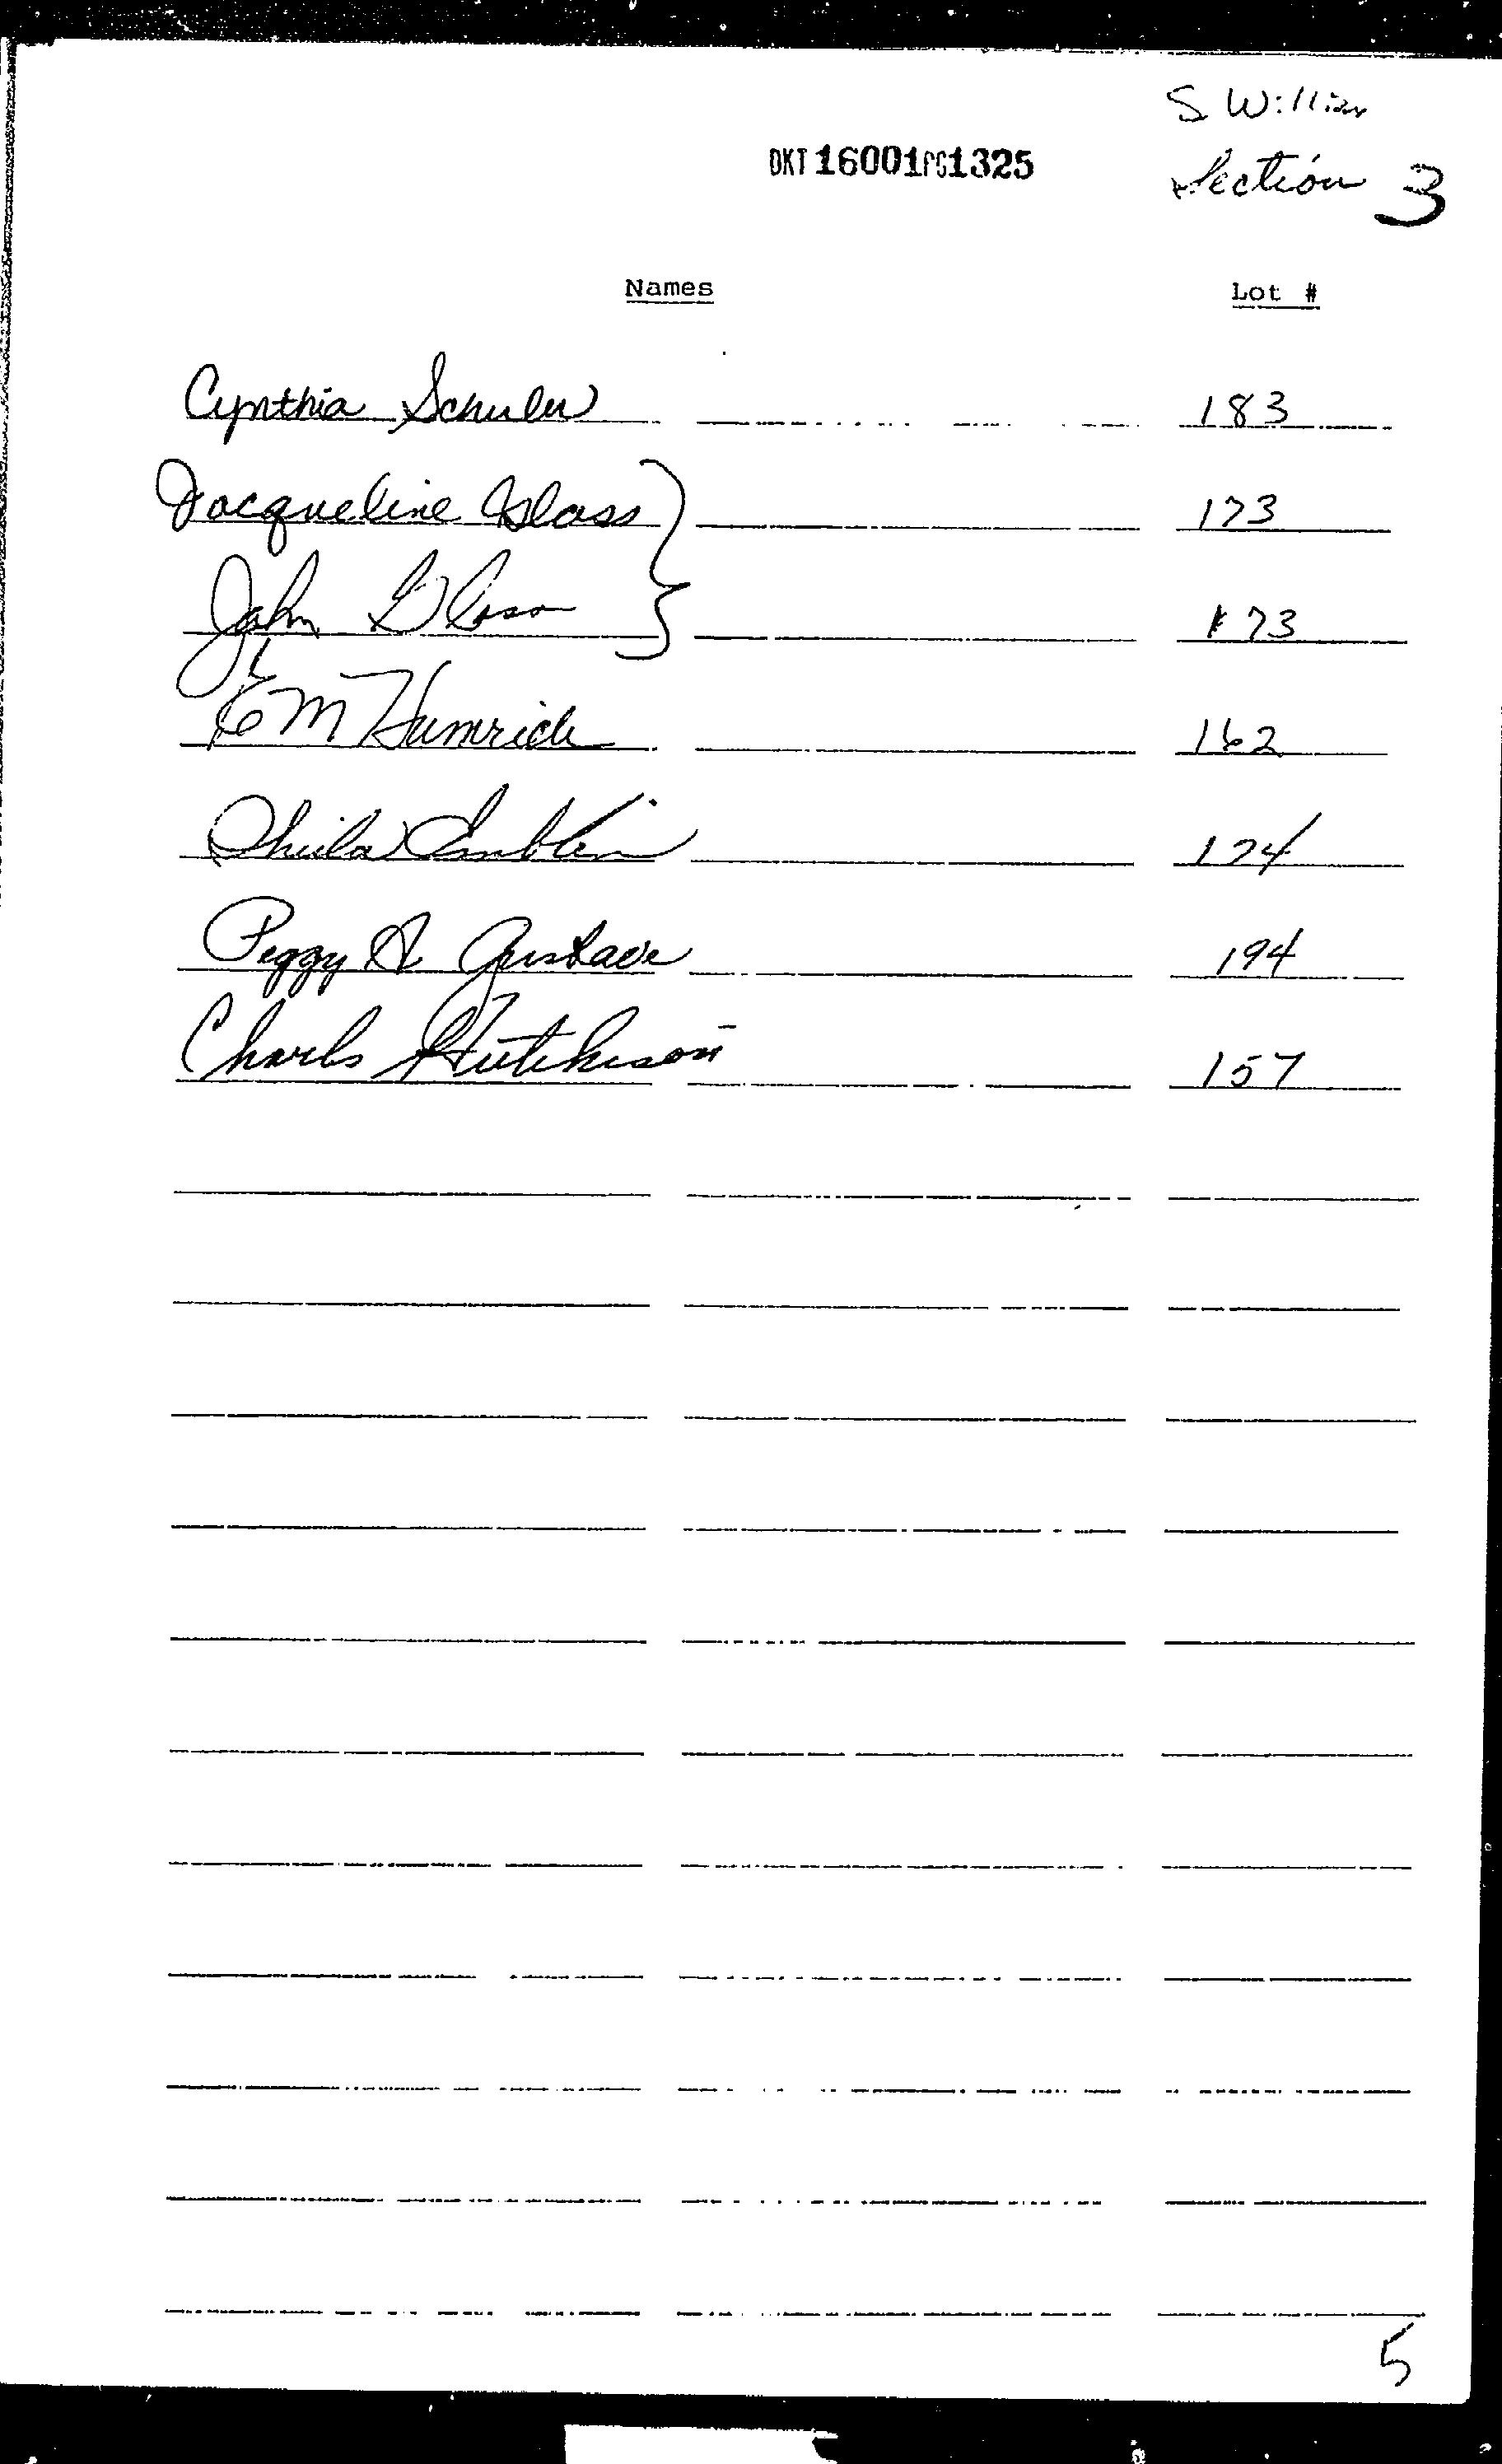 S Willian
DKT 16001 PG 1325
Section 3
Names Lot #
Cynthia Schuler 183
Jacqueline Glass 173
John Glass 173
E M Humrich 162
Sheila 174
Peggy A Gustave 194
Charles Hutchison 157
5